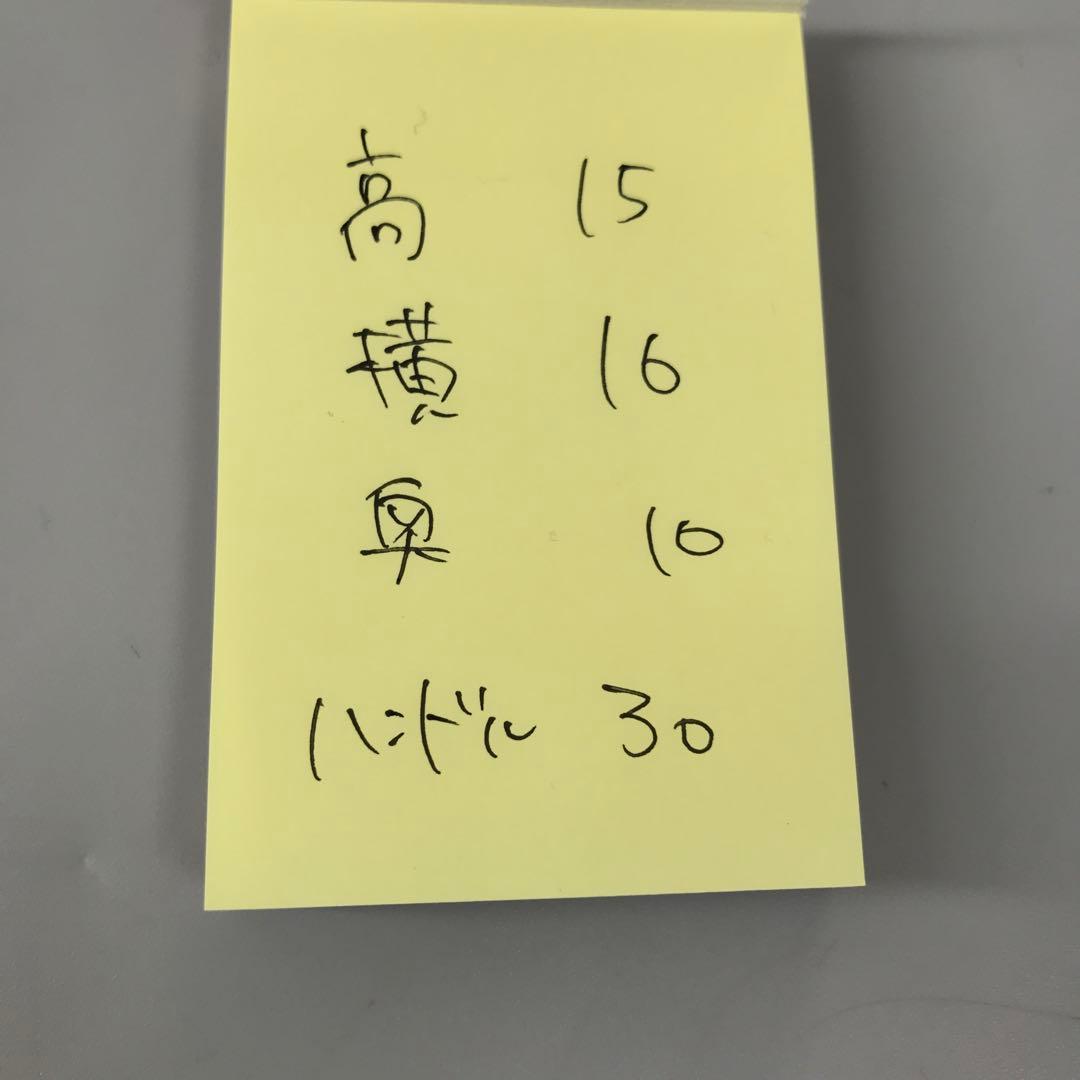 高 15
横 16
奥 10
ハンドル 30